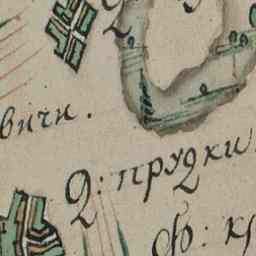 вичи.
Д: прудки
ф: кр